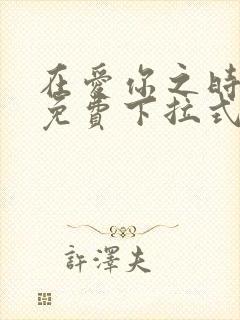 在愛你之時
免費下拉式
許澤夫